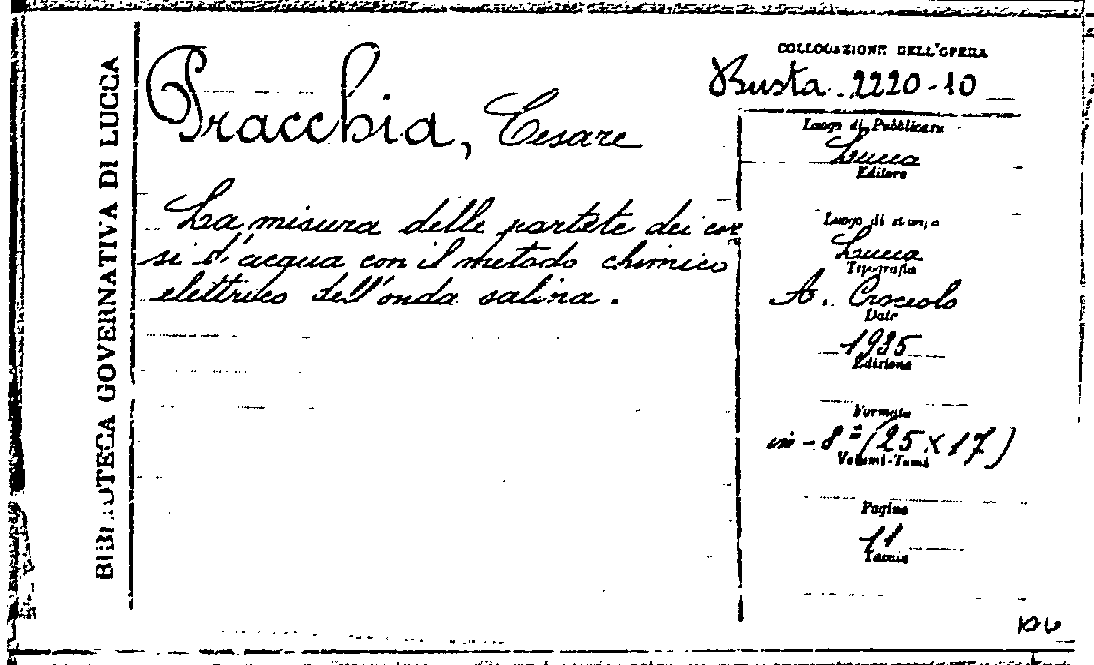 BIBLIOTECA GOVERNATIVA DI LUCCA
Pracchia, Cesare
La misura delle portate dei cor
si d'acqua con il metodo chimico
elettrico dell'onda salina.
COLLOCAZIONE DELL'OPERA
Busta 2220-10
Luogo di Pubblicaz.
Lucca
Editore
Luogo di stampa
Lucca
Tipografia
A.
Data
1935
Edizione
Formato
in-8º (25 x 17)
Volumi-Tomi
Pagine
11
Tavole